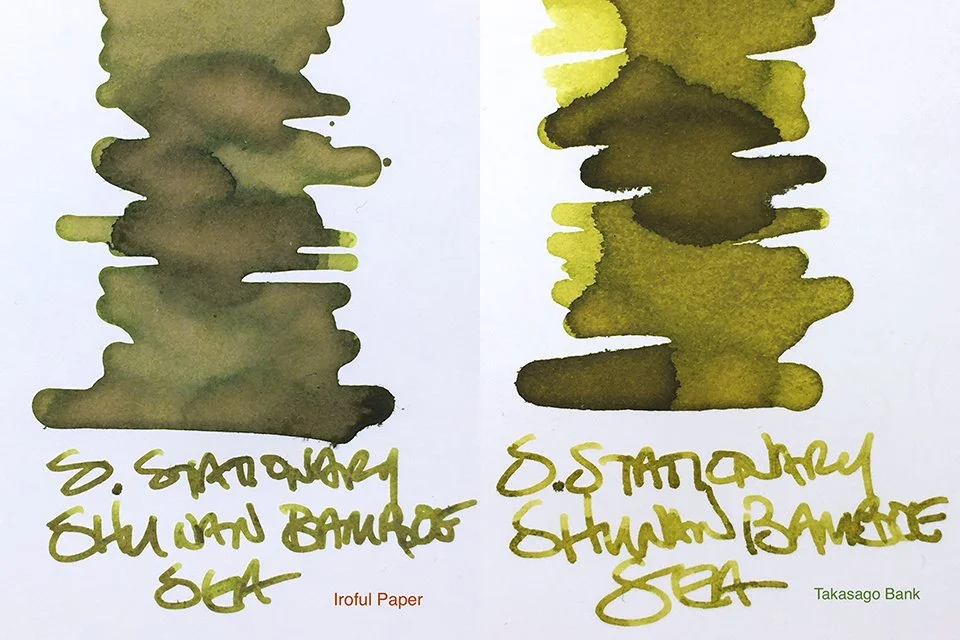 S. STATIONARY
SHUNAN BAMBOE
SEA
Iroful Paper
S. STATIONARY
SHUNAN BAMBOE
SEA
Takasago Bank